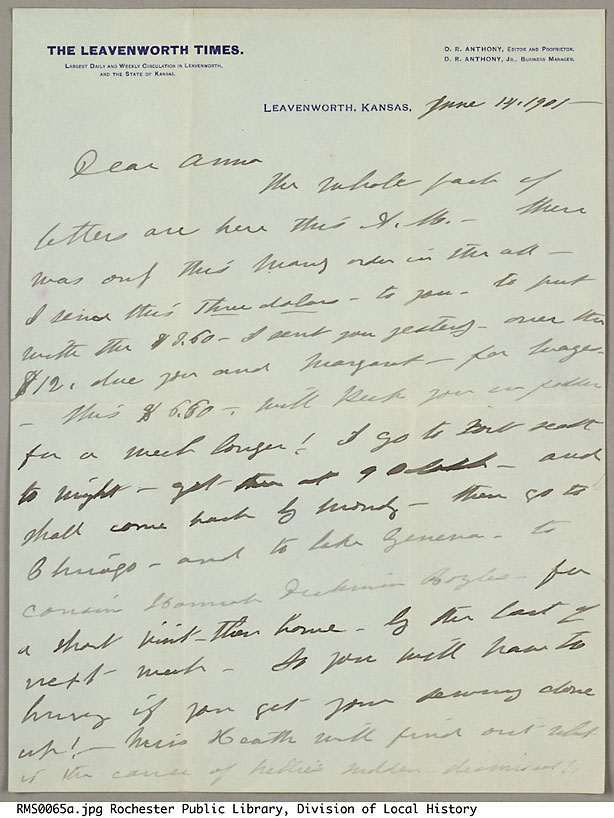 THE LEAVENWORTH TIMES.
LARGEST DAILY AND WEEKLY CIRCULATION IN LEAVENWORTH,
AND THE STATE OF KANSAS.
D. R. ANTHONY, EDITOR AND PROPRIETOR.
D. R. ANTHONY, JR., BUSINESS MANAGER.
LEAVENWORTH, KANSAS, June 14, 1901-
Dear Anna
The whole pack of
letters are here this A. M. - There
was only this money order in the all -
I send this three dolars - to you - to put
with the $3.60 - I sent you yesterdy - over the
$12. due you and Margaret - for wages
- this $6.60 - will keep you in fodder
for a week longer! I go to Fort Scott
to night - get there at 9 Oclock - and
shall come back by mondy - then go to
Chicago - and to Lake Geneva - to
cousin Hannah Boyles - for
a short visit - then home - by the last of
next week - So you will have to
hurry if you get your sewing done
up! - Miss Heath will find out what
is the cause of Nellie's sudden dismissal!
RMS0065a.jpg Rochester Public Library, Division of Local History